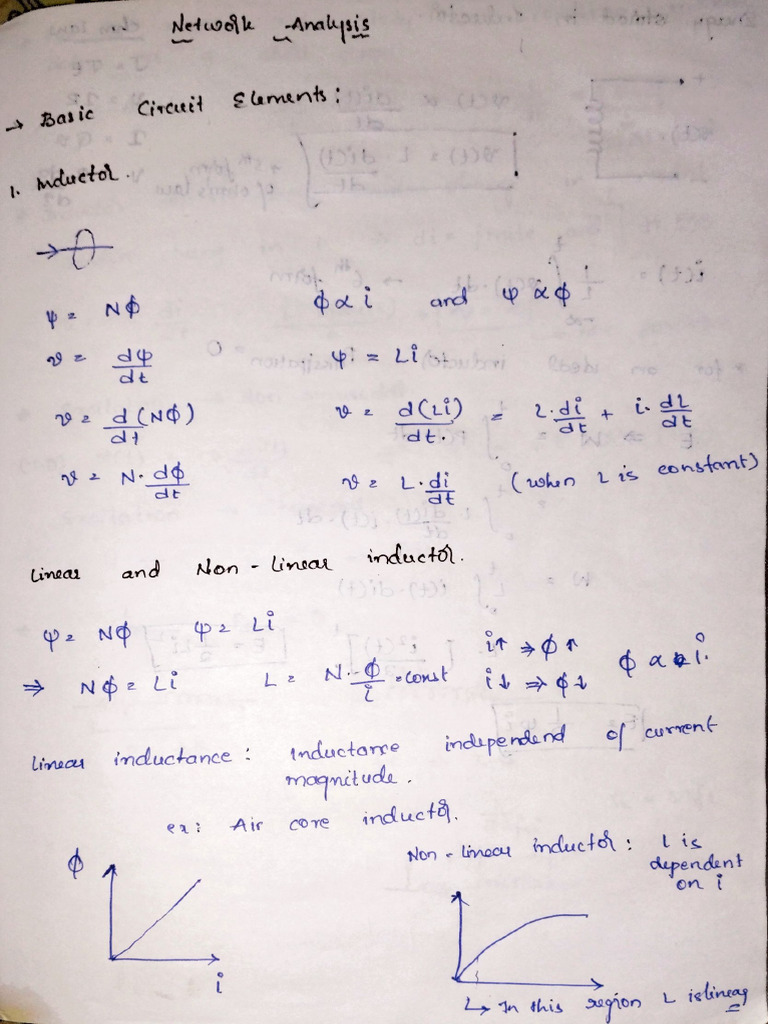 Network Analysis
→ Basic Circuit Elements:
1. Inductor.
ψ = Nϕ ϕ ∝ i and ψ ∝ ϕ
v = dψ/dt ψ = Li
v = d(Nϕ)/dt v = d(Li)/dt. = L.di/dt + i.dL/dt
v = N.dϕ/dt v = L.di/dt (when L is constant)
Linear and Non-Linear inductor.
ψ = Nϕ ψ = Li i↑ ⇒ ϕ↑
⇒ Nϕ = Li L = N.ϕ/i = const i↓ ⇒ ϕ↓ ϕ ∝ i.
Linear inductance: Inductance independend of current
magnitude.
ex: Air core inductor.
Non-linear inductor: L is
dependent
on i
ϕ
i
↳ In this region L is linear